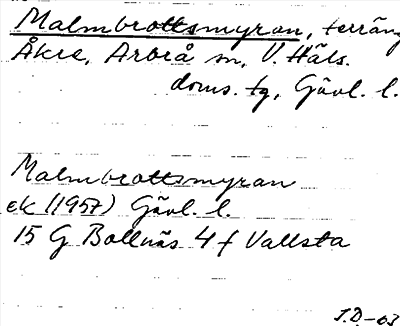 Malmbrottsmyran, terräng
Åkre, Arbrå sn, V. Häls.
doms. tg, Gävl. l.
Malmbrottsmyran
ek (1957) Gävl. l.
15 G Bollnäs 4 f Vallsta
J.D.-63